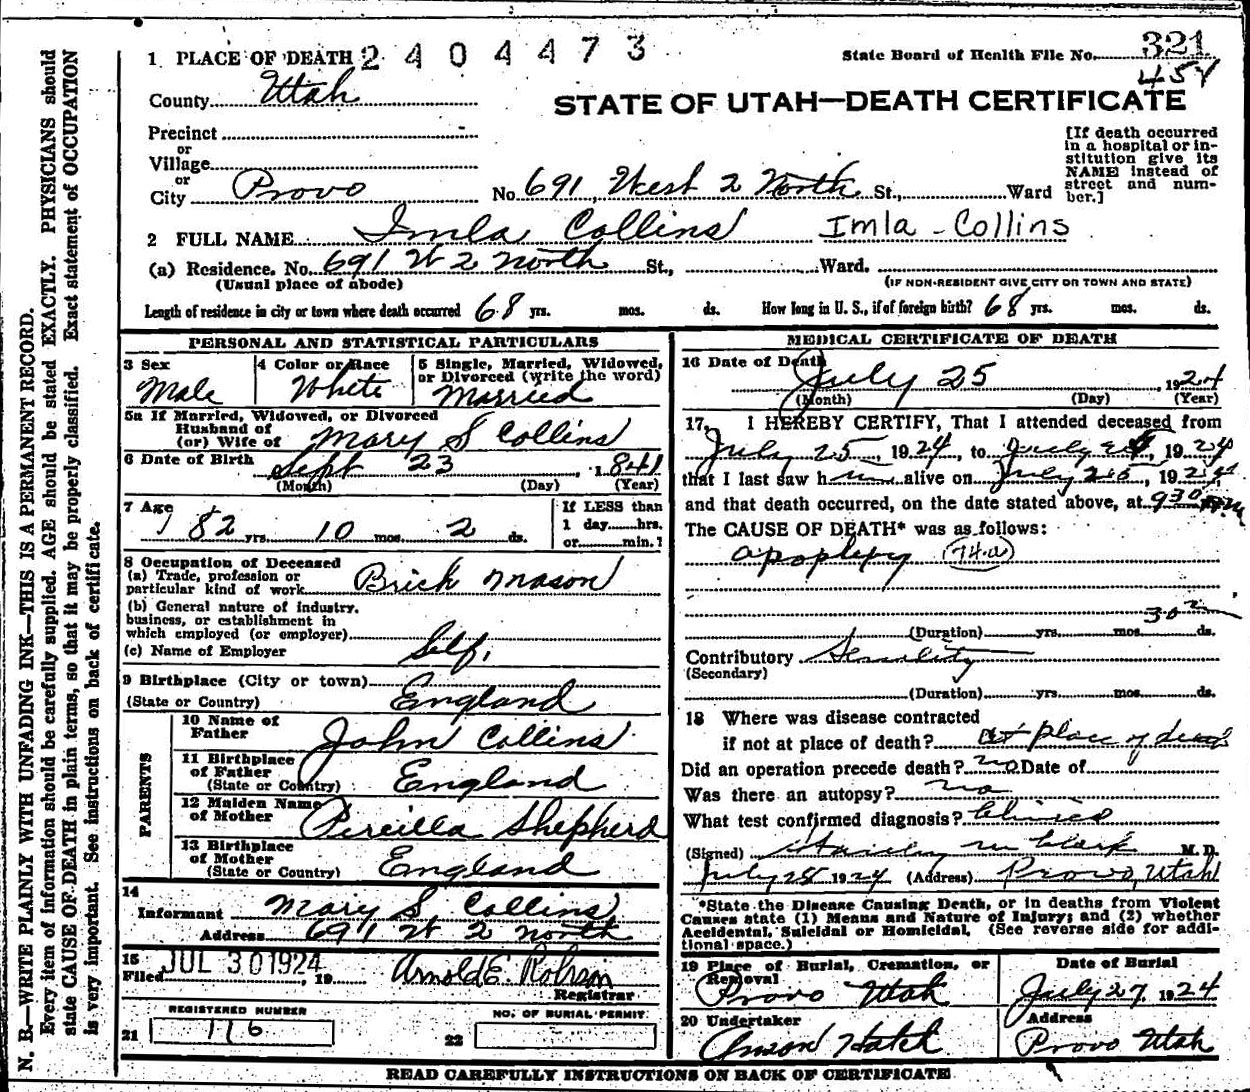 N. B.—WRITE PLAINLY WITH UNFADING INK—THIS IS A PERMANENT RECORD.
Every item of information should be carefully supplied. AGE should be stated EXACTLY. PHYSICIANS should
state CAUSE OF DEATH in plain terms, so that it may be properly classified. Exact statement of OCCUPATION
is very important. See instructions on back of certificate.
1 PLACE OF DEATH 2404473
State Board of Health File No. 321
454
County Utah
STATE OF UTAH—DEATH CERTIFICATE
Precinct
or
Village
or
City Provo No. 691 West 2 North St., Ward
[If death occurred
in a hospital or in-
stitution give its
NAME instead of
street and num-
ber.]
2 FULL NAME Imla Collins Imla - Collins
(a) Residence. No. 691 W 2 North St., Ward.
(Usual place of abode) (IF NON-RESIDENT GIVE CITY OR TOWN AND STATE)
Length of residence in city or town where death occurred 68 yrs. mos. ds. How long in U. S., if of foreign birth? 68 yrs. mos. ds.
PERSONAL AND STATISTICAL PARTICULARS
3 Sex
Male
4 Color or Race
White
5 Single, Married, Widowed,
or Divorced (write the word)
Married
5a If Married, Widowed, or Divorced
Husband of
(or) Wife of Mary S Collins
6 Date of Birth Sept 23, 1841
(Month) (Day) (Year)
7 Age
82 yrs. 10 mos. 2 ds.
If LESS than
1 day hrs.
or min.?
8 Occupation of Deceased
(a) Trade, profession or
particular kind of work Brick Mason
(b) General nature of industry.
business, or establishment in
which employed (or employer)
(c) Name of Employer Self.
9 Birthplace (City or town)
(State or Country) England
PARENTS
10 Name of
Father John Collins
11 Birthplace
of Father
(State or Country) England
12 Maiden Name
of Mother Percilla Shepherd
13 Birthplace
of Mother
(State or Country) England
14
Informant Mary S. Collins
Address 691 W 2 North
15
Filed JUL 30 1924, 19 Arnold E. Robison
Registrar
REGISTERED NUMBER
21 176
NO. OF BURIAL PERMIT
22
MEDICAL CERTIFICATE OF DEATH
16 Date of Death
July 25, 1924
(Month) (Day) (Year)
17, I HEREBY CERTIFY, That I attended deceased from
July 25, 1924, to July, 1924
that I last saw him alive on July 25, 1924
and that death occurred, on the date stated above, at 930
The CAUSE OF DEATH* was as follows:
apoplexy (74a)
(Duration) yrs. mos. ds.
Contributory Senility
(Secondary)
(Duration) yrs. mos. ds.
18 Where was disease contracted
if not at place of death? at place of death
Did an operation precede death? no Date of
Was there an autopsy? no
What test confirmed diagnosis? Clinical
(Signed) Stanley M Clark M. D.
July 25 1924 (Address) Provo, Utah
*State the Disease Causing Death, or in deaths from Violent
Causes state (1) Means and Nature of Injury; and (2) whether
Accidental, Suicidal or Homicidal. (See reverse side for addi-
tional space.)
19 Place of Burial, Cremation, or
Removal
Provo Utah
Date of Burial
July 27, 1924
20 Undertaker
Hatch
Address
Provo Utah
READ CAREFULLY INSTRUCTIONS ON BACK OF CERTIFICATE